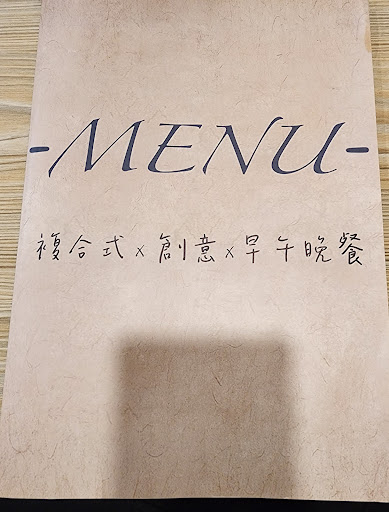 -MENU-
複合式x創意x早午晚餐